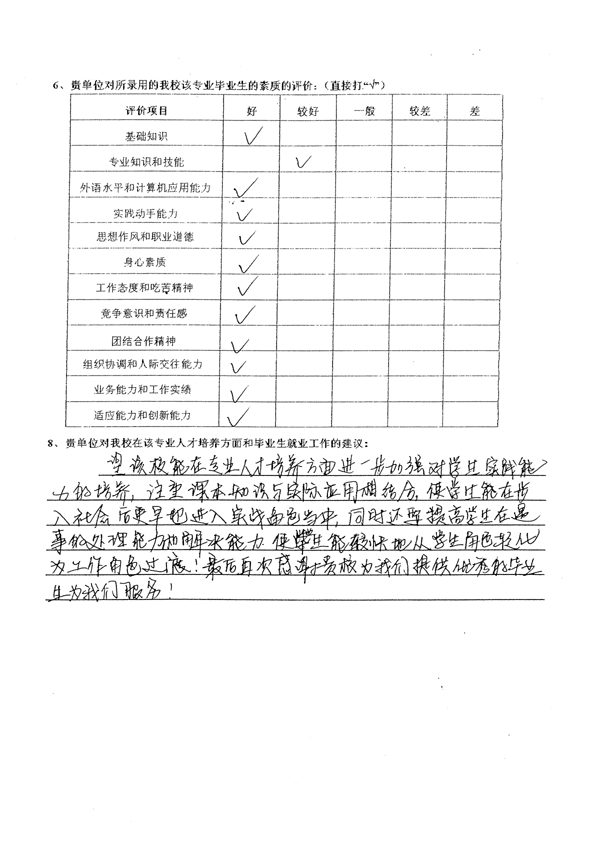 6、贵单位对所录用的我校该专业毕业生的素质的评价:(直接打“√”)
评价项目 好 较好 一般 较差 差
基础知识 √
专业知识和技能 √
外语水平和计算机应用能力 √
实践动手能力 √
思想作风和职业道德 √
身心素质 √
工作态度和吃苦精神 √
竞争意识和责任感 √
团结合作精神 √
组织协调和人际交往能力 √
业务能力和工作实绩 √
适应能力和创新能力 √
8、贵单位对我校在该专业人才培养方面和毕业生就业工作的建议:
望该校能在专业人才培养方面进一步加强对学生实践能
力的培养,注重课本知识与实际应用相结合,使学生能在步
入社会后更早地进入实战角色当中,同时还要提高学生在遇
事的处理能力和解决能力 使学生能较快地从学生角色转化
为工作角色过渡!最后再次感谢贵校为我们提供优秀的毕业
生为我们服务!